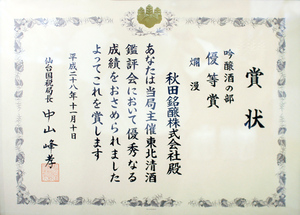 賞状
吟醸酒の部
優等賞
爛漫
秋田銘醸株式会社殿
あなたは当局主催東北清酒
鑑評会において優秀なる
成績をおさめられました
よってこれを賞します
平成二十八年十一月十日
仙台国税局長
中山峰孝